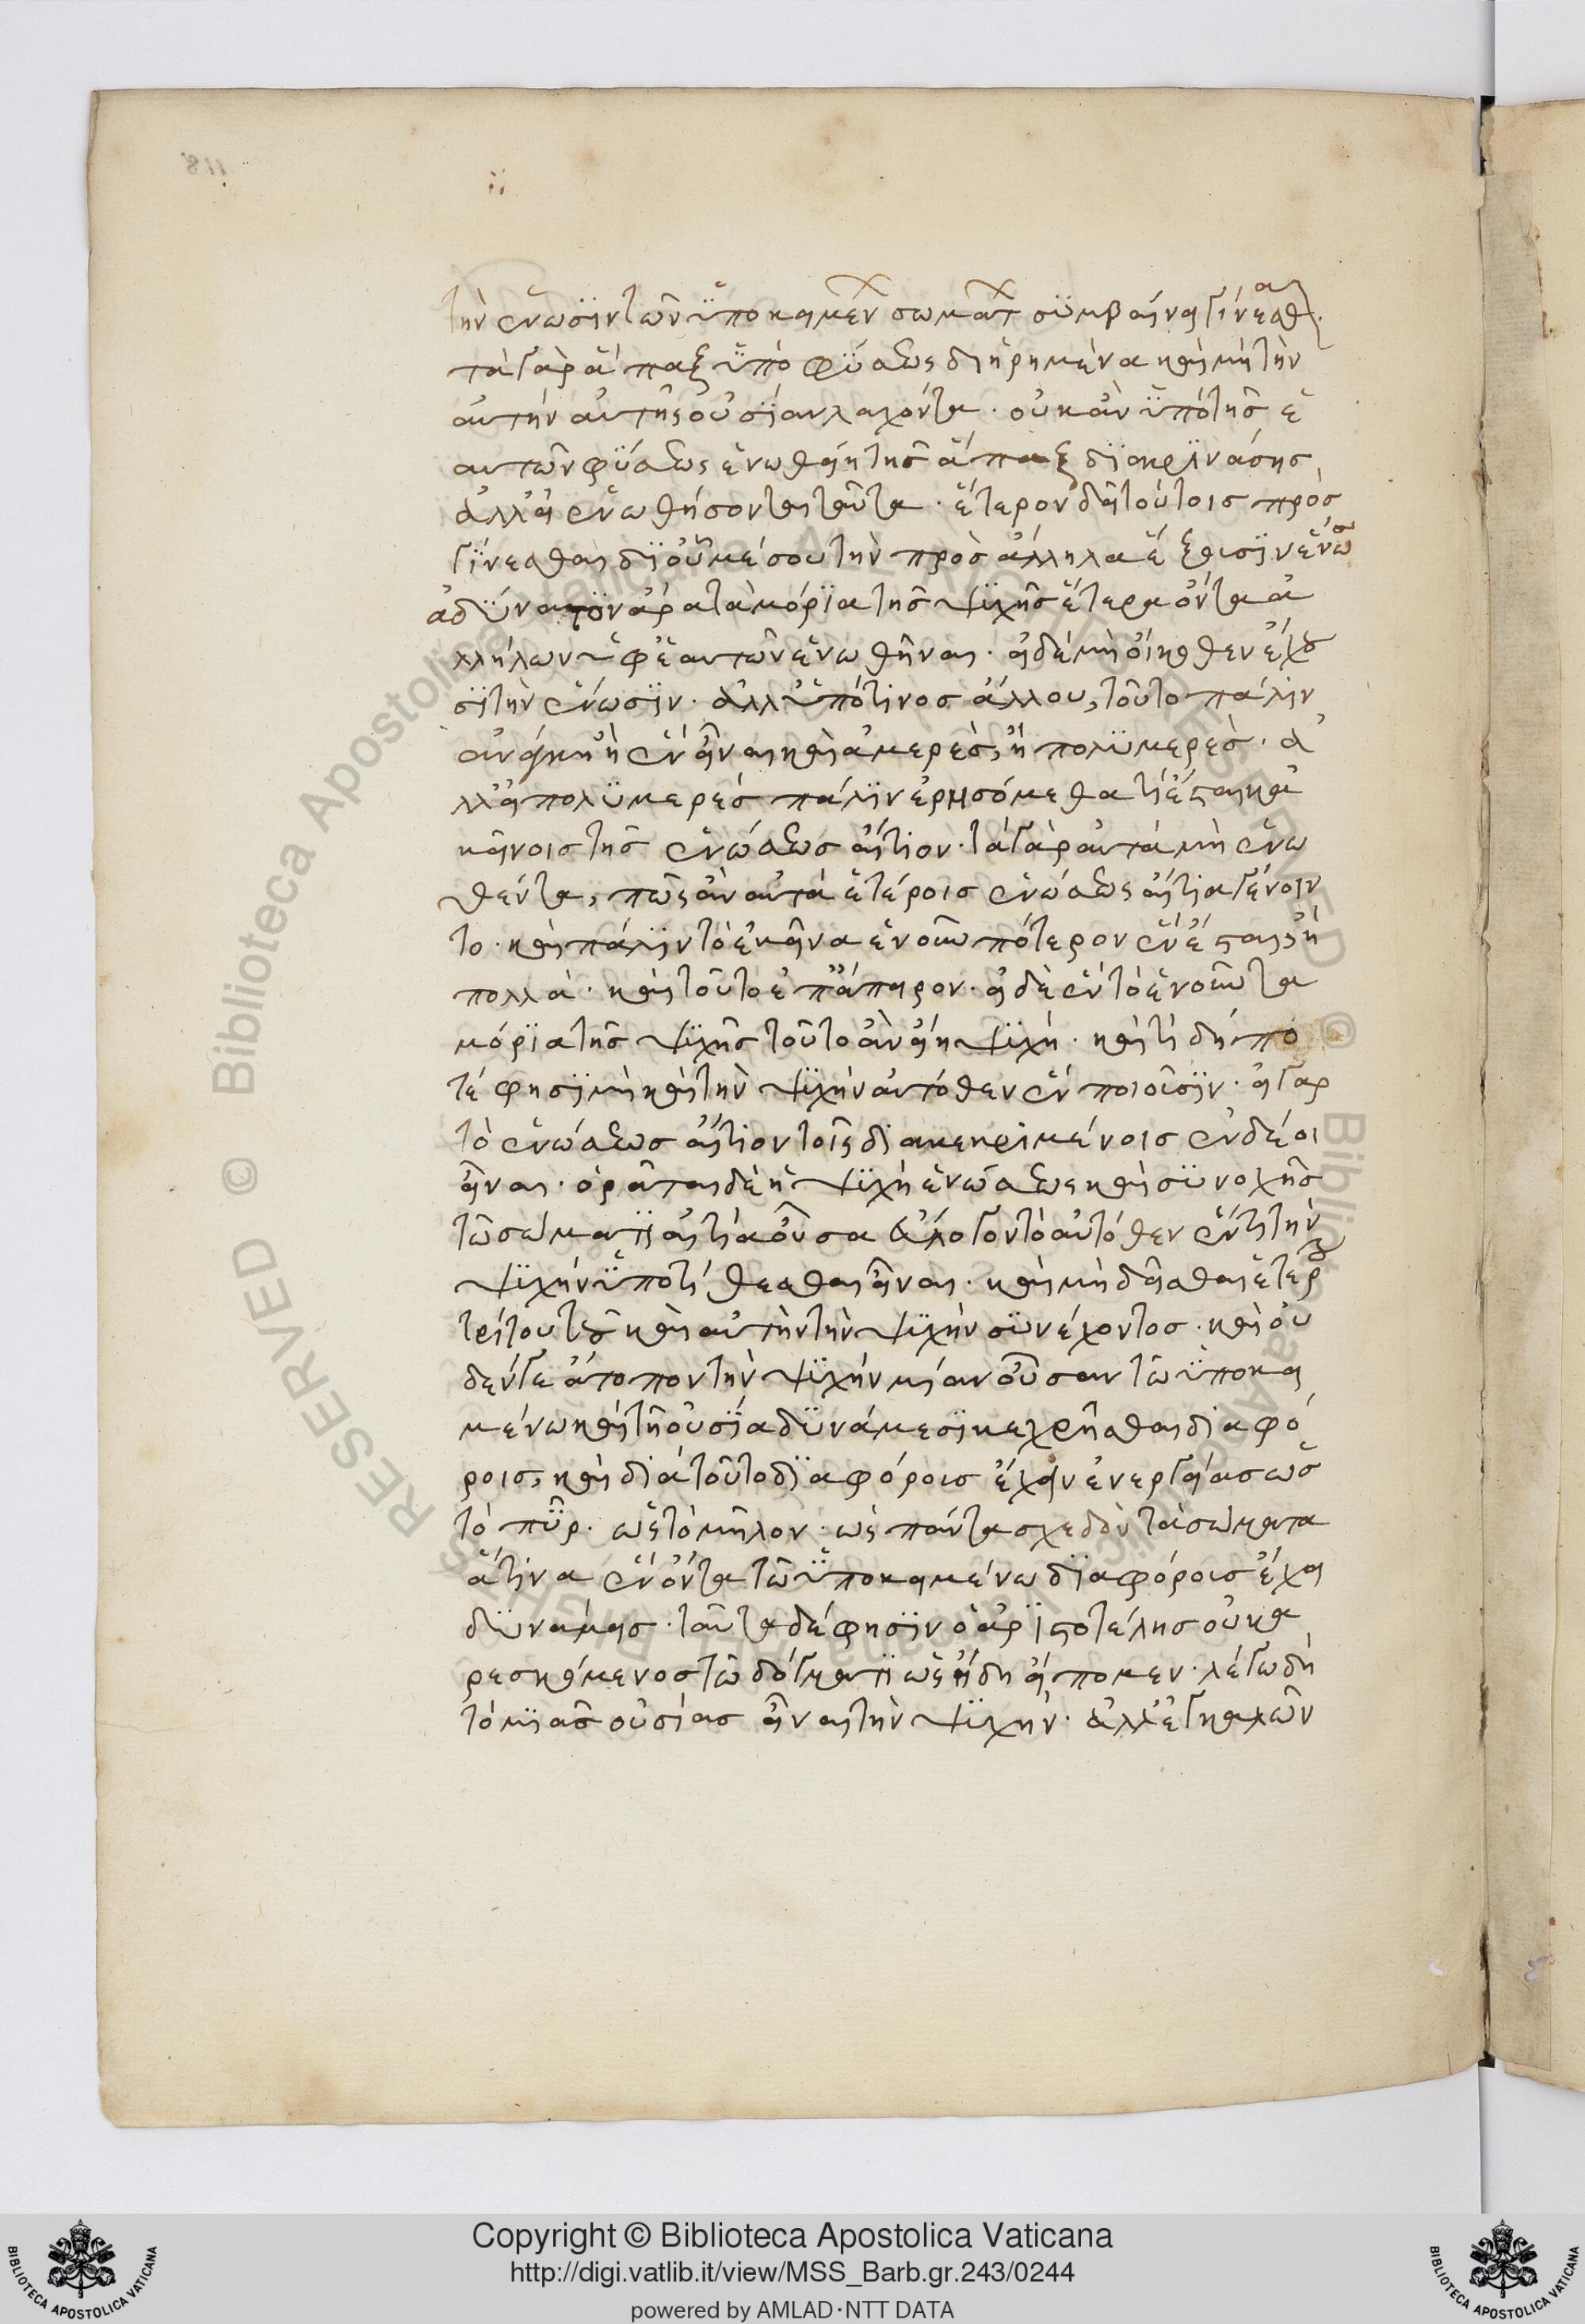 τὴν ἕνωσιν τῶν ὑποκειμένων σωμάτων συμβαίνει γίνεσθαι·
τὰ γὰρ ἅπαξ ὑπὸ φύσεως διῃρημένα καὶ μὴ τὴν
αὐτὴν αὐτῆς οὐσίαν λαχόντα· οὐκ ἂν ὑπό τῆς ἑ
αυτῶν φύσεως ἑνωθείη τῆς ἅπαξ διακρινάσης,
ἀλλ' εἰ ἑνωθήσονται ταῦτα· ἕτερον δεῖ τούτοις προσ
γίνεσθαι δι' οὗ μέσου τὴν πρὸς ἄλληλα ἕξουσιν ἕνωσιν
ἀδύνατον ἄρα τὰ μόρια τῆς ψυχῆς ἕτερα ὄντα ἀ
λλήλων ὑφ' ἑαυτῶν ἑνωθῆναι· εἰ δὲ μὴ οἴκοθεν ἔχου
σι τὴν ἕνωσιν· ἀλλ' ὑπό τινος ἄλλου, τοῦτο πάλιν
ἀνάγκη ἢ ἓν εἶναι καὶ ἀμερὲς, ἢ πολυμερὲς· ἀ
λλ' εἰ πολυμερές πάλιν ἐρησόμεθα τί ἔσται κἀ
κείνοις τῆς ἑνώσεως αἴτιον· τὰ γὰρ αὐτὰ μὴ ἑνω
θέντα, πῶς ἂν αὐτὰ ἑτέροις ἑνώσεως αἴτια γένοιν
το· καὶ πάλιν τὸ ἐκεῖνα ἑνοῦν πότερον ἕν ἐσται, ἢ
πολλὰ· καὶ τοῦτο ἐπ' ἄπειρον· εἰ δὲ ἓν τὸ ἑνοῦν τὰ
μόρια τῆς ψυχῆς τοῦτο ἂν εἴη ψυχή· καὶ τί δή πο
τέ φησι μὴ καὶ τὴν ψυχὴν αὐτόθεν ἓν ποιοῦσιν· εἰ γὰρ
τὸ ἑνώσεως αἴτιον τοῖς διακεκριμένοις ἓν δέοι
εἶναι· ὁρᾶται δὲ ἡ ψυχὴ ἑνώσεως καὶ συνοχῆς
τῶ σώματι αἰτία οὖσα ἄλογον τὸ αὐτόθεν ἕν τι τὴν
ψυχήν ὑποτίθεσθαι εἶναι· καὶ μὴ δεῖσθαι ἑτέρου
τρίτου τοῦ καὶ αὐτὴν τὴν ψυχὴν συνέχοντος· καὶ οὐ
δέν γε ἄτοπον τὴν ψυχήν μίαν οὖσαν τῶ ὑποκει
μένω καὶ τῆ οὐσία δυνάμεσι κεχρῆσθαι διαφό
ροις, καὶ διὰ τοῦτο διαφόροις ἔχειν ἐνεργείας ὡς
τὸ πῦρ· ὡς τὸ μῆλον· ὡς πάντα σχεδὸν τὰ σώματα
ἅτινα ἓν ὄντα τῶ ὑποκειμένω διαφόροις ἔχει
δυνάμεις· ταῦτα δέ φησιν ὁ ἀριστοτέλης οὐκ ἀ
ρεσκόμενος τῶ δόγματι ὡς ἤδη εἴπομεν· λέγω δὴ
τὸ μιᾶς οὐσίας εἶναι τὴν ψυχήν· ἀλλ' ἐγκαλῶν
Copyright © Biblioteca Apostolica Vaticana
http://digi.vatlib.it/view/MSS_Barb.gr.243/0244
powered by AMLAD·NTT DATA